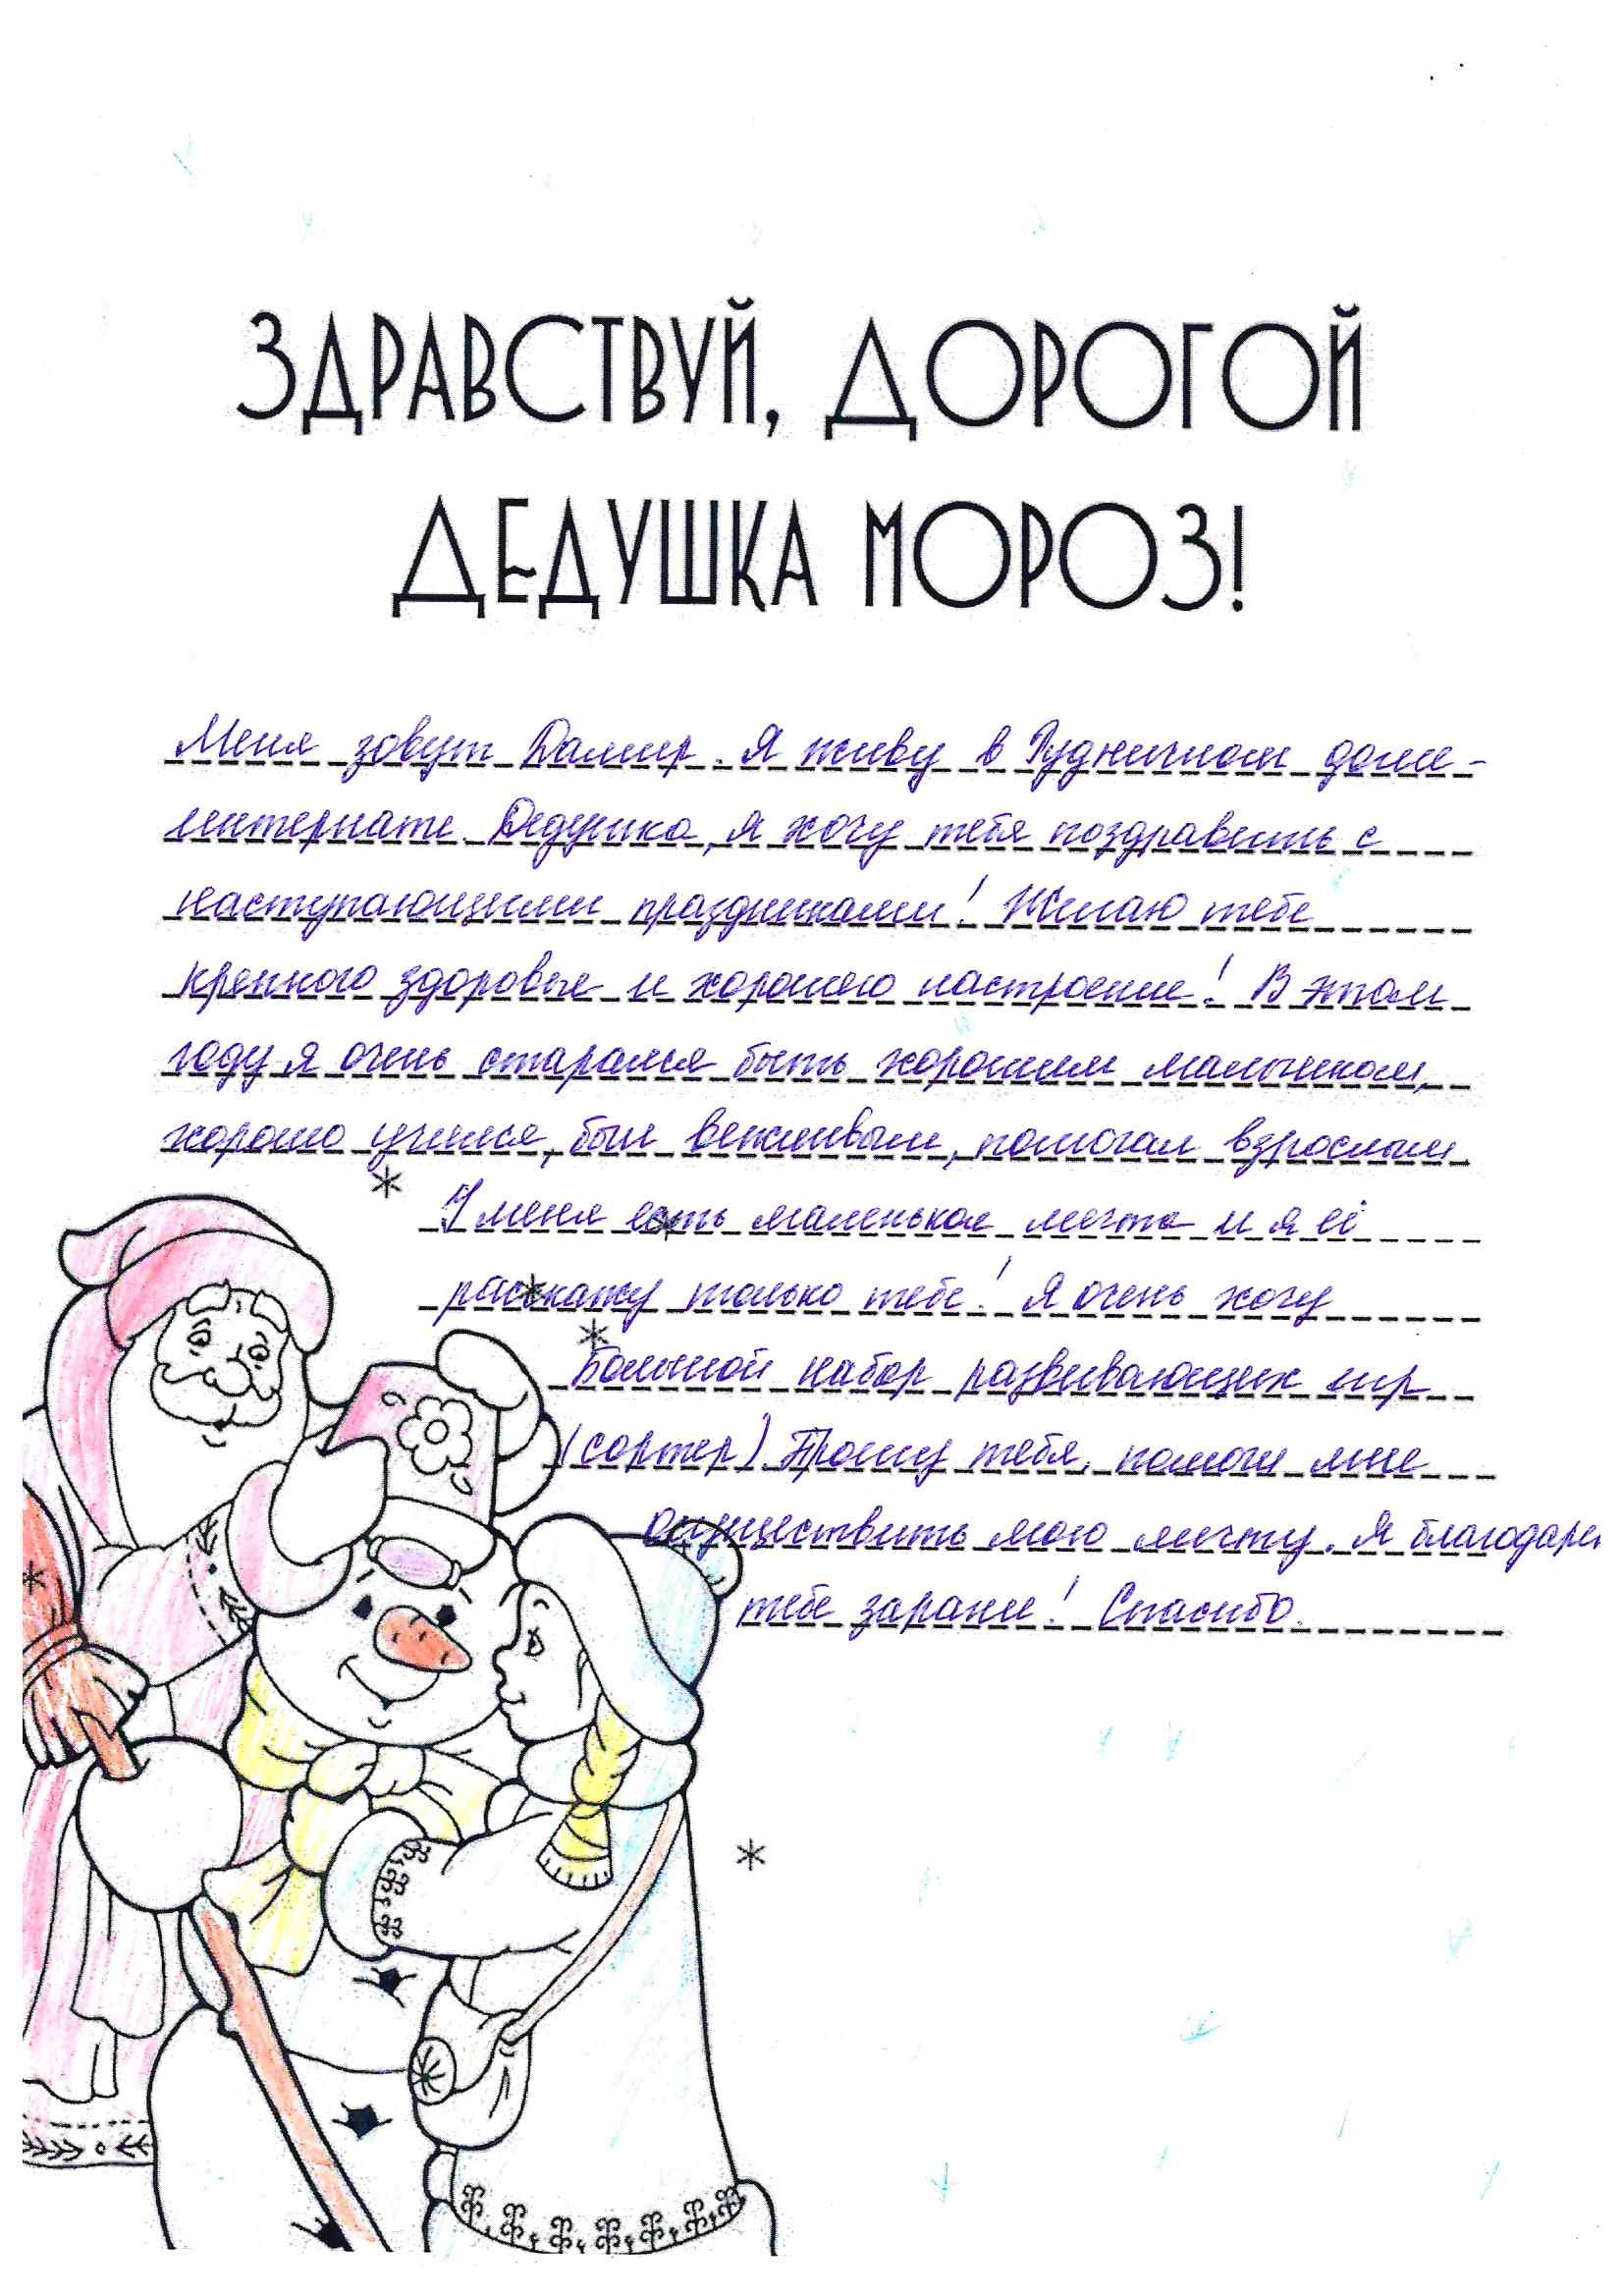 ЗДРАВСТВУЙ, ДОРОГОЙ
ДЕДУШКА МОРОЗ!
Меня зовут Дамир. Я живу в Рудничном доме-
интернате. Дедушка, я хочу тебя поздравить с
наступающими праздниками! Желаю тебе
крепкого здоровья и хорошего настроение! В этом
году я очень старался быть хорошим мальчиком,
хорошо учился, был вежливым, помогал взрослым.
У меня есть маленькая мечта и я её
расскажу только тебе! Я очень хочу
большой набор развивающих игр
(сортер). Прошу тебя, помоги мне
осуществить мою мечту. Я благодарен
тебе заранее! Спасибо.